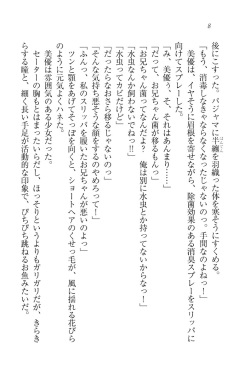 8
後にこすった。パジャマに半纏を羽織った体を寒そうにすくめる。
「もう、消毒しなきゃならなくなっちゃったじゃないのっ。手間なのよねっ！」
美優は、イヤそうに眉を寄せながら、除菌効果のある消臭スプレーをスリッパに
向けてスプレーした。
「み、美優、そ、それはあんまり……」
「だって、お兄ちゃん菌がつくじゃないのっ」
「お兄ちゃん菌ってなんだよ。俺は別に水虫とか持ってないからなっ」
「水虫なんか飼わないでねっ!!」
「水虫ってカビだけど」
「だったらなおさら移るじゃないのっ」
「そんな気持ち悪そうな顔をするのやめろって！」
「ふんっ、私のスリッパを履いたお兄ちゃんが悪いのよっ」
ツンと顎をあげてそっぽを向くと、ショートヘアのくせっ毛が、風に揺れる花びら
のように元気よくハネた。
美優は雰囲気のある少女だった。
セーターの胸もとはまったいらだし、ほっそりというよりもガリガリだが、きらき
らする瞳と、細く長い手足が活動的な印象で、ぴちぴち跳ねるお魚みたいだ。